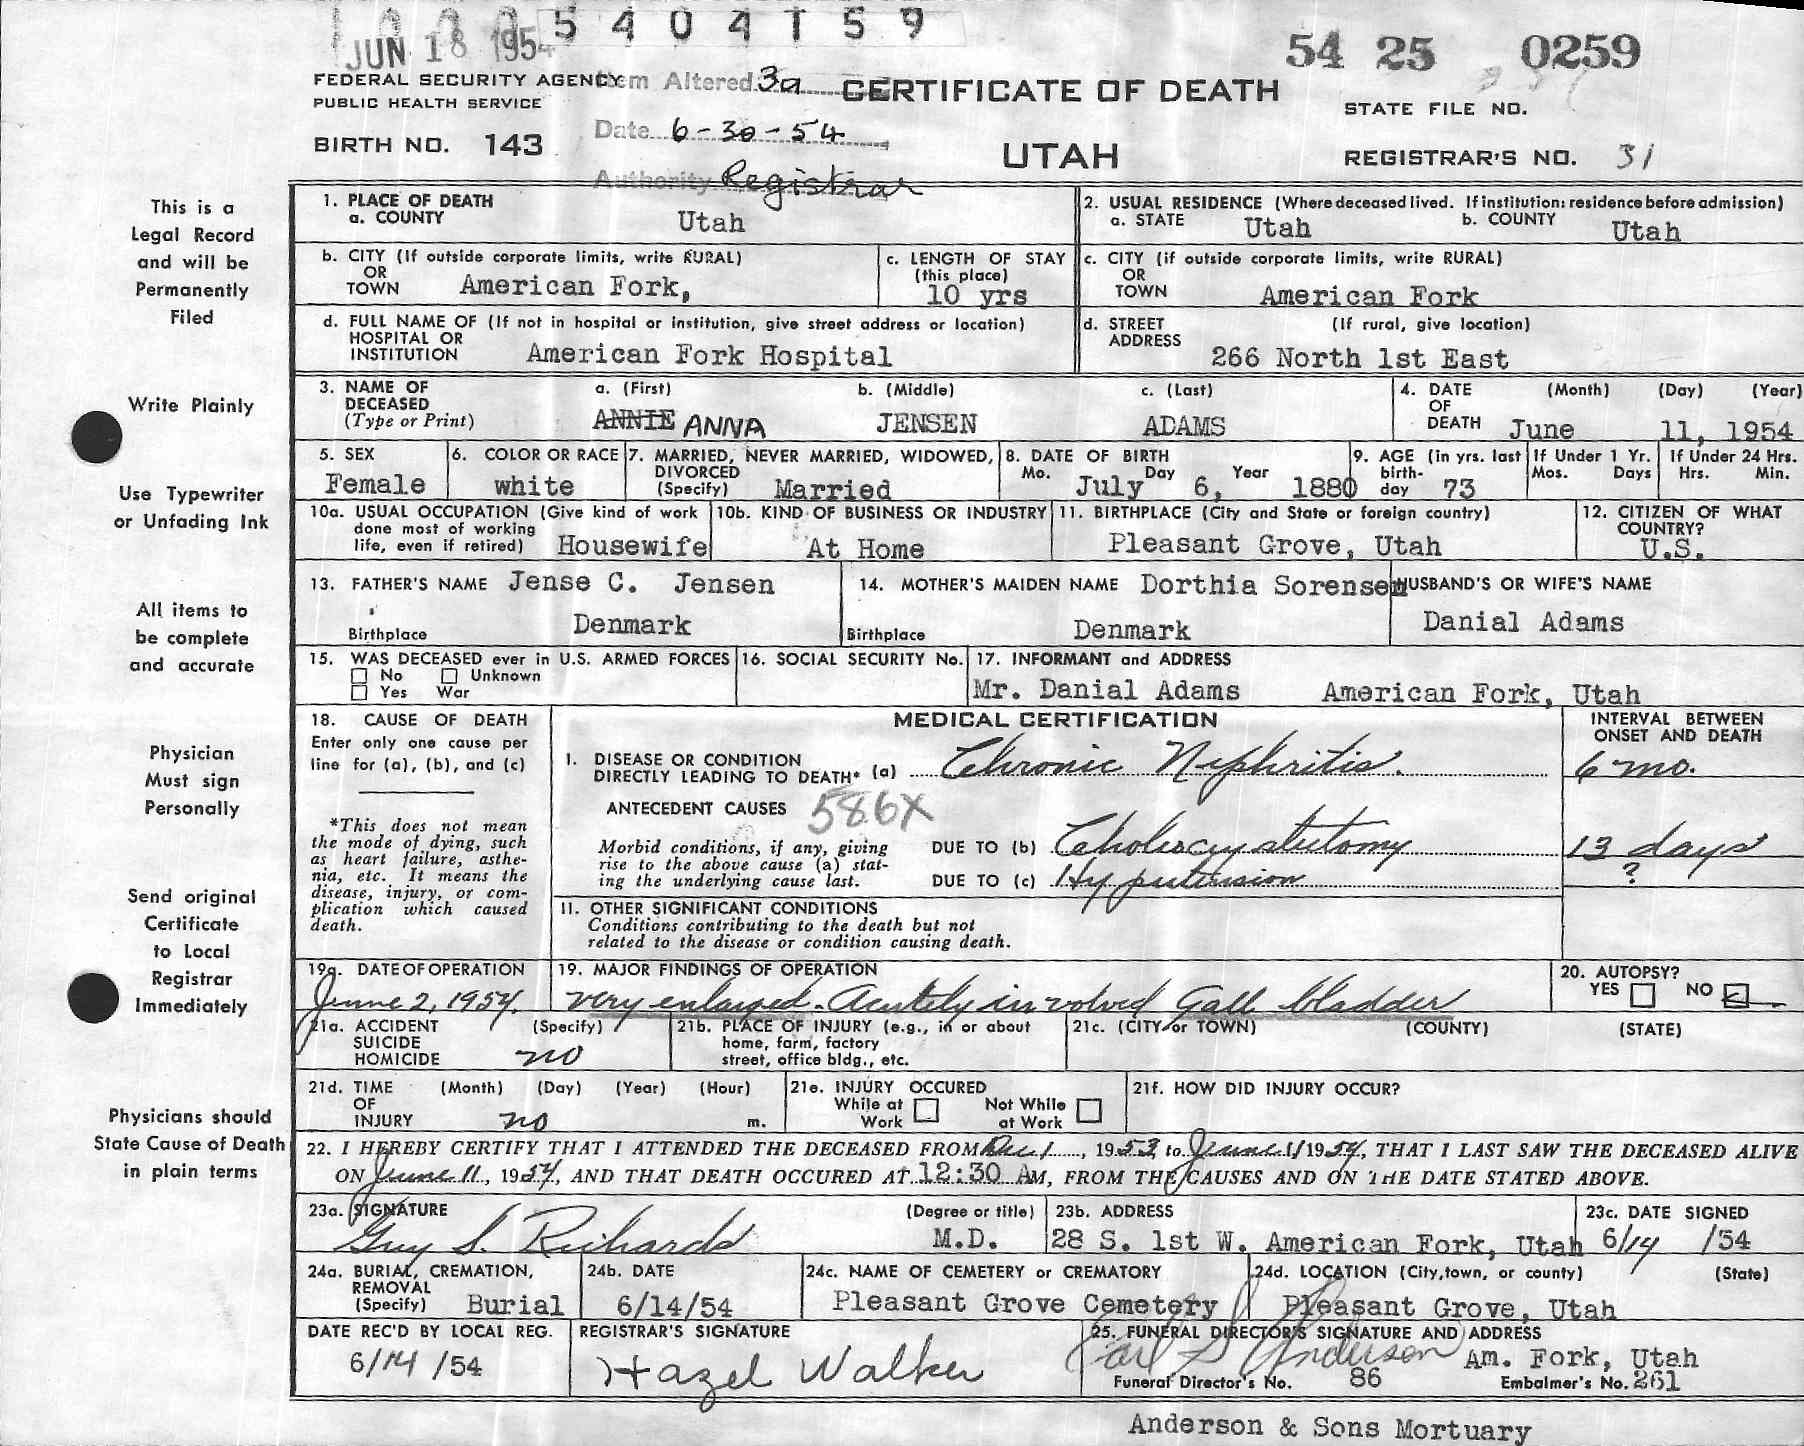 1005404159
JUN 18 1954
54 25 0259
FEDERAL SECURITY AGENCY
PUBLIC HEALTH SERVICE
Item Altered 3a
CERTIFICATE OF DEATH
STATE FILE NO.
BIRTH NO. 143
Date 6-30-54
UTAH
REGISTRAR'S NO. 31
Authority Registrar
This is a
Legal Record
and will be
Permanently
Filed
Write Plainly
Use Typewriter
or Unfading Ink
All items to
be complete
and accurate
Physician
Must sign
Personally
Send original
Certificate
to Local
Registrar
Immediately
Physicians should
State Cause of Death
in plain terms
1. PLACE OF DEATH
a. COUNTY Utah
2. USUAL RESIDENCE (Where deceased lived. If institution: residence before admission)
a. STATE Utah b. COUNTY Utah
b. CITY (If outside corporate limits, write RURAL)
OR
TOWN American Fork,
c. LENGTH OF STAY
(this place)
10 yrs
c. CITY (if outside corporate limits, write RURAL)
OR
TOWN American Fork
d. FULL NAME OF (If not in hospital or institution, give street address or location)
HOSPITAL OR
INSTITUTION American Fork Hospital
d. STREET (If rural, give location)
ADDRESS
266 North 1st East
3. NAME OF a. (First) b. (Middle) c. (Last)
DECEASED
(Type or Print) ANNIE ANNA JENSEN ADAMS
4. DATE (Month) (Day) (Year)
OF
DEATH June 11, 1954
5. SEX
Female
6. COLOR OR RACE
white
7. MARRIED, NEVER MARRIED, WIDOWED,
DIVORCED
(Specify) Married
8. DATE OF BIRTH
Mo. Day Year
July 6, 1880
9. AGE (in yrs. last
birth-
day 73
If Under 1 Yr.
Mos. Days
If Under 24 Hrs.
Hrs. Min.
10a. USUAL OCCUPATION (Give kind of work
done most of working
life, even if retired) Housewife
10b. KIND OF BUSINESS OR INDUSTRY
At Home
11. BIRTHPLACE (City and State or foreign country)
Pleasant Grove, Utah
12. CITIZEN OF WHAT
COUNTRY?
U.S.
13. FATHER'S NAME Jense C. Jensen
Birthplace Denmark
14. MOTHER'S MAIDEN NAME Dorthia Sorensen
Birthplace Denmark
HUSBAND'S OR WIFE'S NAME
Danial Adams
15. WAS DECEASED ever in U.S. ARMED FORCES
No Unknown
Yes War
16. SOCIAL SECURITY No.
17. INFORMANT and ADDRESS
Mr. Danial Adams American Fork, Utah
18. CAUSE OF DEATH
Enter only one cause per
line for (a), (b), and (c)
*This does not mean
the mode of dying, such
as heart failure, asthe-
nia, etc. It means the
disease, injury, or com-
plication which caused
death.
MEDICAL CERTIFICATION
INTERVAL BETWEEN
ONSET AND DEATH
I. DISEASE OR CONDITION
DIRECTLY LEADING TO DEATH* (a) Chronic Nephritis. 6 mo.
ANTECEDENT CAUSES 586X
Morbid conditions, if any, giving
rise to the above cause (a) stat-
ing the underlying cause last.
DUE TO (b) Cholecystectomy 13 days
DUE TO (c) Hypertension ?
11. OTHER SIGNIFICANT CONDITIONS
Conditions contributing to the death but not
related to the disease or condition causing death.
19a. DATE OF OPERATION
June 2, 1954.
19. MAJOR FINDINGS OF OPERATION
very enlarged. Acutely involved Gall bladder
20. AUTOPSY?
YES NO
21a. ACCIDENT (Specify)
SUICIDE
HOMICIDE no
21b. PLACE OF INJURY (e.g., in or about
home, farm, factory
street, office bldg., etc.
21c. (CITY or TOWN) (COUNTY) (STATE)
21d. TIME (Month) (Day) (Year) (Hour)
OF
INJURY no m.
21e. INJURY OCCURED
While at Work
Not While at Work
21f. HOW DID INJURY OCCUR?
22. I HEREBY CERTIFY THAT I ATTENDED THE DECEASED FROM Dec 1, 1953, to June 11 1954, THAT I LAST SAW THE DECEASED ALIVE
ON June 11, 1954, AND THAT DEATH OCCURED AT 12:30 AM, FROM THE CAUSES AND ON THE DATE STATED ABOVE.
23a. SIGNATURE (Degree or title)
Guy S. Richards M.D.
23b. ADDRESS
28 S. 1st W. American Fork, Utah
23c. DATE SIGNED
6/14 /54
24a. BURIAL, CREMATION,
REMOVAL
(Specify) Burial
24b. DATE
6/14/54
24c. NAME OF CEMETERY or CREMATORY
Pleasant Grove Cemetery
24d. LOCATION (City, town, or county) (State)
Pleasant Grove, Utah
DATE REC'D BY LOCAL REG.
6/14 /54
REGISTRAR'S SIGNATURE
Hazel Walker
25. FUNERAL DIRECTOR'S SIGNATURE AND ADDRESS
Earl S Anderson Am. Fork, Utah
Funeral Director's No. 86 Embalmer's No. 261
Anderson & Sons Mortuary